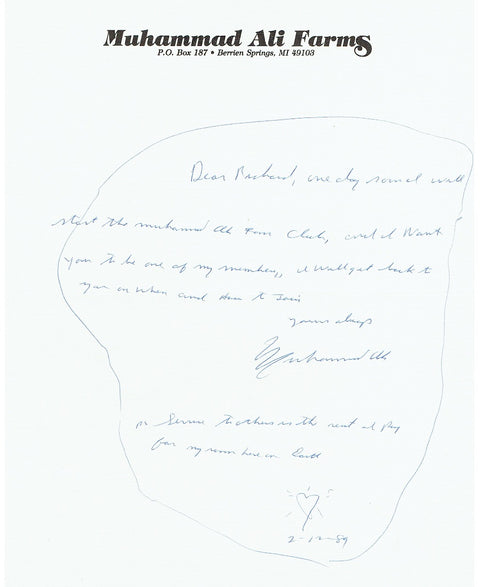 Muhammad Ali Farms
P.O. Box 187 • Berrien Springs, MI 49103
Dear Richard, one day soon I will
start the muhammad Ali Fan Club, and I Want
you to be one of my members, I will get back to
you on When and how to Join
yours always
Muhammad Ali
ps Service to others is the rent I pay
for my room here on Earth
2-12-89